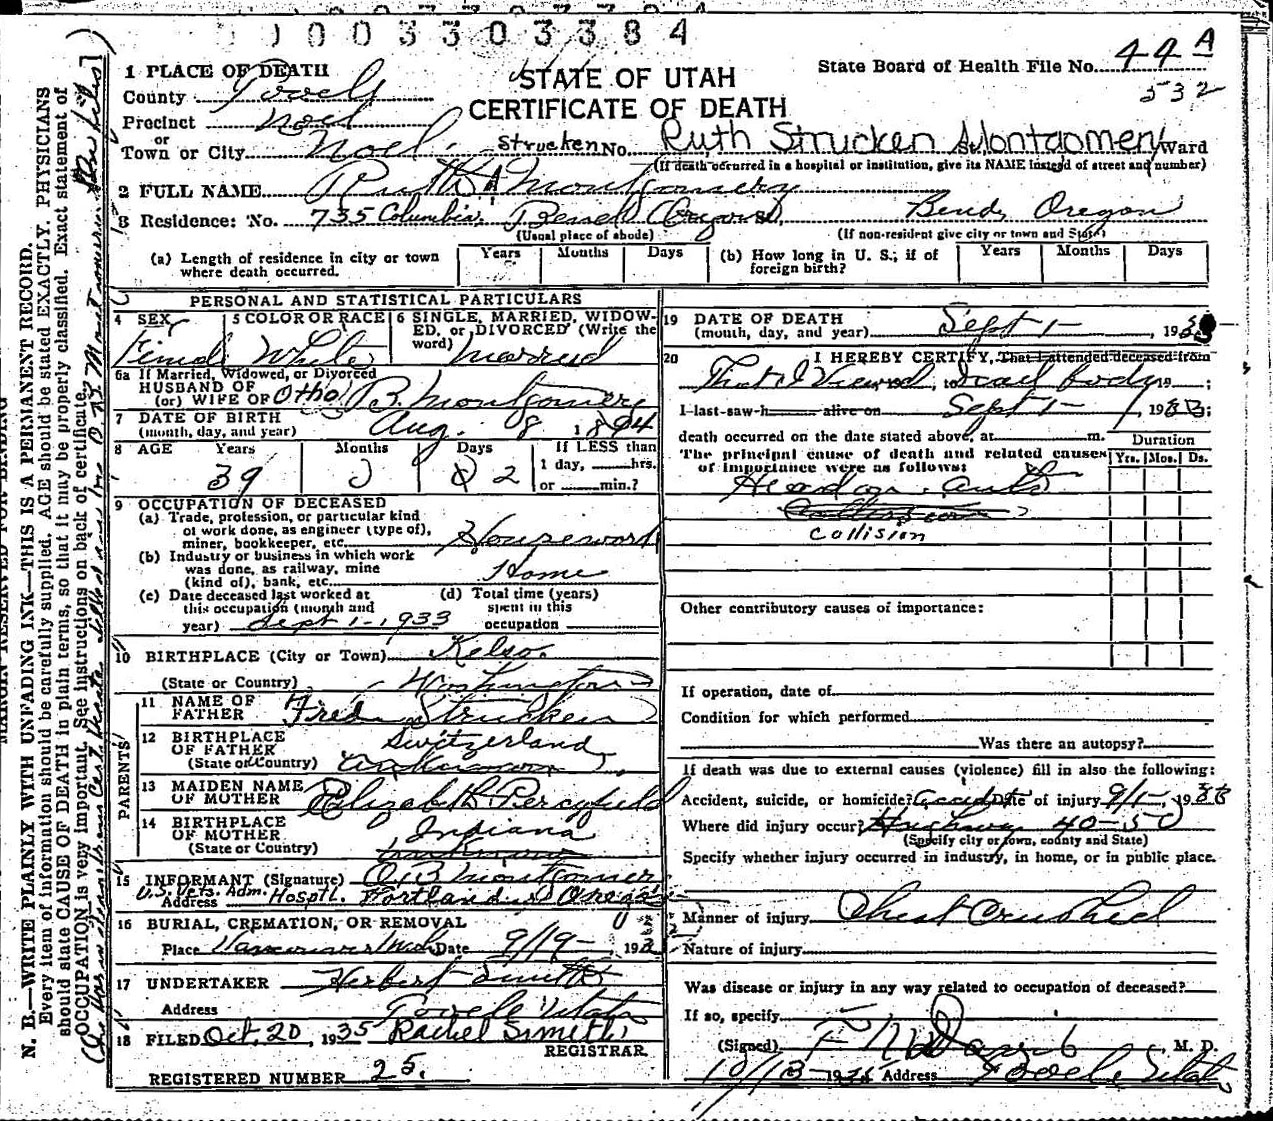 0003303384
STATE OF UTAH
CERTIFICATE OF DEATH
State Board of Health File No. 44 A
532
1 PLACE OF DEATH
County
Precinct Noel
or
Town or City Noel No. Strucken Ruth Strucken Montgomery Ward
(If death occurred in a hospital or institution, give its NAME instead of street and number)
2 FULL NAME Ruth Montgomery
3 Residence: No. 735 Columbia, Bend Oregon Bend, Oregon
(Usual place of abode) (If non-resident give city or town and State)
(a) Length of residence in city or town where death occurred. Years Months Days (b) How long in U. S.; if of foreign birth? Years Months Days
PERSONAL AND STATISTICAL PARTICULARS
4 SEX 5 COLOR OR RACE 6 SINGLE, MARRIED, WIDOW-
ED, or DIVORCED (Write the
word)
White married
6a If Married, Widowed, or Divorced
HUSBAND OF
(or) WIFE OF Otho B. Montgomery
7 DATE OF BIRTH
(month, day, and year) Aug. 8 1894
8 AGE Years Months Days If LESS than
1 day, hrs.
or min.?
39 2
9 OCCUPATION OF DECEASED
(a) Trade, profession, or particular kind
of work done, as engineer (type of),
miner, bookkeeper, etc. Housework
(b) Industry or business in which work
was done, as railway, mine
(kind of), bank, etc. Home
(c) Date deceased last worked at
this occupation (month and
year) Sept 1-1933
(d) Total time (years)
spent in this
occupation
10 BIRTHPLACE (City or Town) Kelso.
(State or Country) Washington
PARENTS
11 NAME OF
FATHER Fred Strucken
12 BIRTHPLACE
OF FATHER Switzerland
(State or Country) unknown
13 MAIDEN NAME
OF MOTHER Elizabeth Percyfield
14 BIRTHPLACE
OF MOTHER Indiana
(State or Country) unknown
15 INFORMANT (Signature) O B Montgomery
Address U.S. Vets. Adm. Hosptl. Portland Oregon
16 BURIAL, CREMATION, OR REMOVAL
Place Vancouver Wash Date 9/19- 193
17 UNDERTAKER Herbert Smith
Address Tooele Utah
18 FILED Oct. 20, 1935 Rachel Smith
REGISTRAR
REGISTERED NUMBER 25.
19 DATE OF DEATH
(month, day, and year) Sept 1- , 193
20 I HEREBY CERTIFY, That I attended deceased from
That I Viewed, to body
I last saw h alive on Sept 1- , 1933;
death occurred on the date stated above, at m.
The principal cause of death and related causes
of importance were as follows:
Duration
Yrs. Mos. Ds.
Head on auto
Collision
Collision
Other contributory causes of importance:
If operation, date of
Condition for which performed
Was there an autopsy?
If death was due to external causes (violence) fill in also the following:
Accident, suicide, or homicide? Accident Date of injury 9/1-, 1933
Where did injury occur? Highway 40-50
(Specify city or town, county and State)
Specify whether injury occurred in industry, in home, or in public place.
Manner of injury Chest Crushed
Nature of injury
Was disease or injury in any way related to occupation of deceased?
If so, specify
(Signed) M. D.
10/18- Address Tooele Utah
N. B.—WRITE PLAINLY WITH UNFADING INK—THIS IS A PERMANENT RECORD.
Every item of information should be carefully supplied. AGE should be stated EXACTLY. PHYSICIANS
should state CAUSE OF DEATH in plain terms, so that it may be properly classified. Exact statement of
OCCUPATION is very important. See instructions on back of certificate.